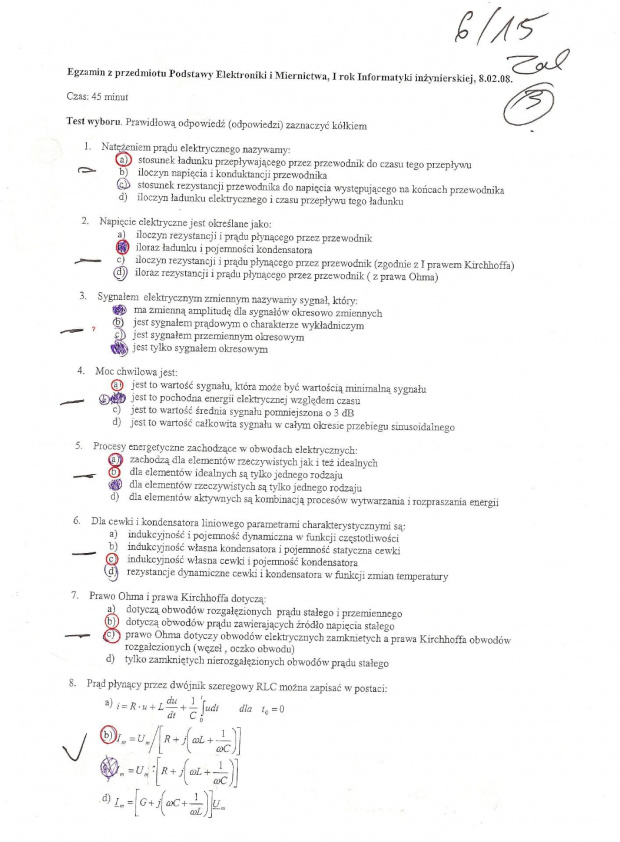 6/15
Zal
3
Egzamin z przedmiotu Podstawy Elektroniki i Miernictwa, I rok Informatyki inżynierskiej, 8.02.08.
Czas: 45 minut
Test wyboru. Prawidłową odpowiedź (odpowiedzi) zaznaczyć kółkiem
1. Natężeniem prądu elektrycznego nazywamy:
a) stosunek ładunku przepływającego przez przewodnik do czasu tego przepływu
b) iloczyn napięcia i konduktancji przewodnika
c) stosunek rezystancji przewodnika do napięcia występującego na końcach przewodnika
d) iloczyn ładunku elektrycznego i czasu przepływu tego ładunku
2. Napięcie elektryczne jest określane jako:
a) iloczyn rezystancji i prądu płynącego przez przewodnik
iloraz ładunku i pojemności kondensatora
c) iloczyn rezystancji i prądu płynącego przez przewodnik (zgodnie z I prawem Kirchhoffa)
d) iloraz rezystancji i prądu płynącego przez przewodnik ( z prawa Ohma)
3. Sygnałem elektrycznym zmiennym nazywamy sygnał, który:
ma zmienną amplitudę dla sygnałów okresowo zmiennych
b) jest sygnałem prądowym o charakterze wykładniczym
? c) jest sygnałem przemiennym okresowym
jest tylko sygnałem okresowym
4. Moc chwilowa jest:
a) jest to wartość sygnału, która może być wartością minimalną sygnału
b jest to pochodna energii elektrycznej względem czasu
c) jest to wartość średnia sygnału pomniejszona o 3 dB
d) jest to wartość całkowita sygnału w całym okresie przebiegu sinusoidalnego
5. Procesy energetyczne zachodzące w obwodach elektrycznych:
a) zachodzą dla elementów rzeczywistych jak i też idealnych
b) dla elementów idealnych są tylko jednego rodzaju
dla elementów rzeczywistych są tylko jednego rodzaju
d) dla elementów aktywnych są kombinacją procesów wytwarzania i rozpraszania energii
6. Dla cewki i kondensatora liniowego parametrami charakterystycznymi są:
a) indukcyjność i pojemność dynamiczna w funkcji częstotliwości
b) indukcyjność własna kondensatora i pojemność statyczna cewki
c) indukcyjność własna cewki i pojemność kondensatora
d) rezystancje dynamiczne cewki i kondensatora w funkcji zmian temperatury
7. Prawo Ohma i prawa Kirchhoffa dotyczą:
a) dotyczą obwodów rozgałęzionych prądu stałego i przemiennego
b) dotyczą obwodów prądu zawierających źródło napięcia stałego
c) prawo Ohma dotyczy obwodów elektrycznych zamkniętych a prawa Kirchhoffa obwodów
rozgałezionych (węzeł , oczko obwodu)
d) tylko zamkniętych nierozgałęzionych obwodów prądu stałego
8. Prąd płynący przez dwójnik szeregowy RLC można zapisać w postaci:
a) i = R · u + L du/dt + 1/C ∫₀ᵗ udt dla t₀ = 0
b) I_m = U_m / [R + j(ωL + 1/ωC)]
I_m = U_m : [R + j(ωL + 1/ωC)]
d) I_m = [G + j(ωC + 1/ωL)] U_m